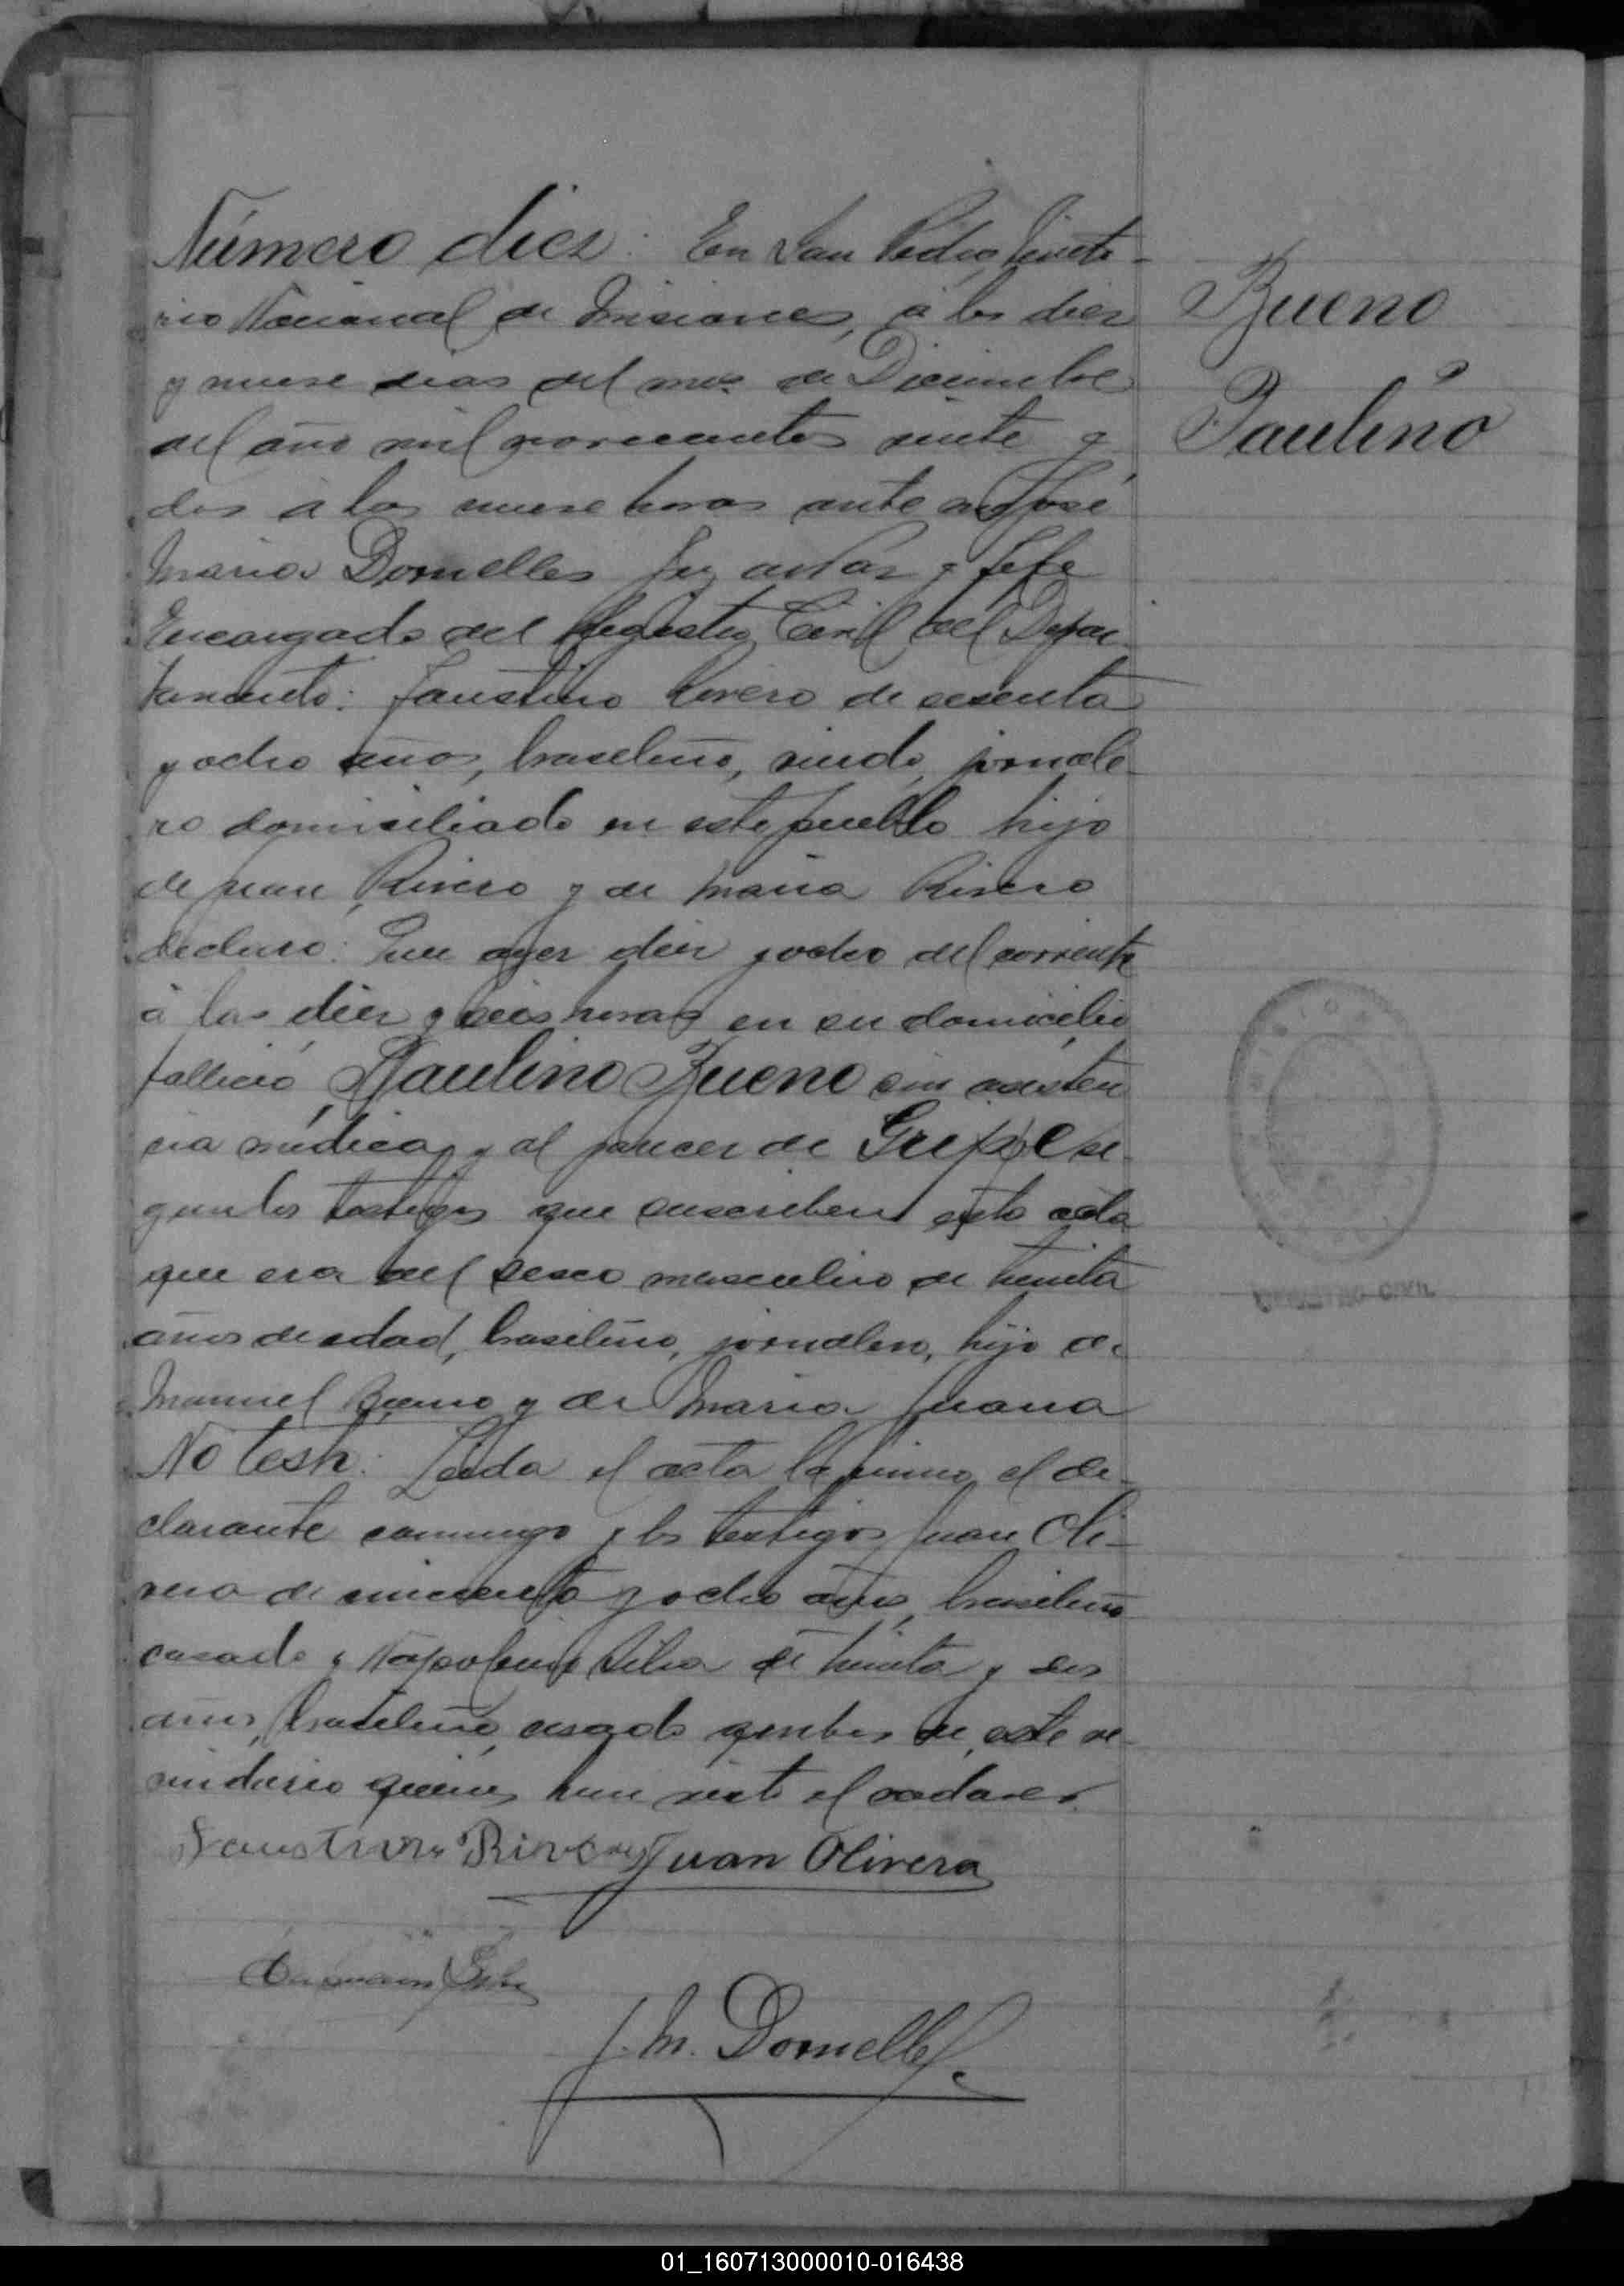 Número diez: En San Pedro, Territo-
rio Nacional de Misiones, á los diez
y nueve dias del mes de Diciembre
del año mil novecientos veinte y
dos á las nueve horas ante mi José
Maria Dornelles Juez de Paz y Jefe
Encargado del Registro Civil del Depar-
tamento: Faustino Rivero de sesenta
y ocho años, brasileño, viudo, jornale-
ro domiciliado en este pueblo hijo
de Juan Rivero y de Maria Rivero
declaró: Que ayer diez y ocho del corriente
á las diez y seis horas en su domicilio
falleció Paulino Bueno sin asisten
cia médica, y al parecer de Gripe se-
gun los testigos que suscriben esta acta
que era del sexo masculino de treinta
años de edad, brasileño, jornalero, hijo de
Manuel Bueno y de Maria Juana
No testó. Leida el acta la firmó el de-
clarante conmigo y los testigos Juan Oli-
vera de cincuenta y ocho años, brasileño
casado y Napoleon Silva de treinta y dos
años, brasileño, casado ambos de este ve-
cindario quienes han visto el cadaver.
Faustino Rivero Juan Olivera
J. M. Dornelles
Bueno
Paulino
REGISTRO CIVIL
01_160713000010-016438